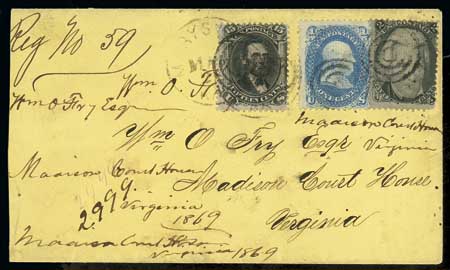 Reg No 59
Wm O. F
Wm O Fry Esqr
15 15
1
ONE CENT
Madison Court House
Virginia
Wm O Fry Esqr
Madison Court House
Madison Court House.
2999
Virginia
1869
Virginia
Madison Court
Virginia 1869